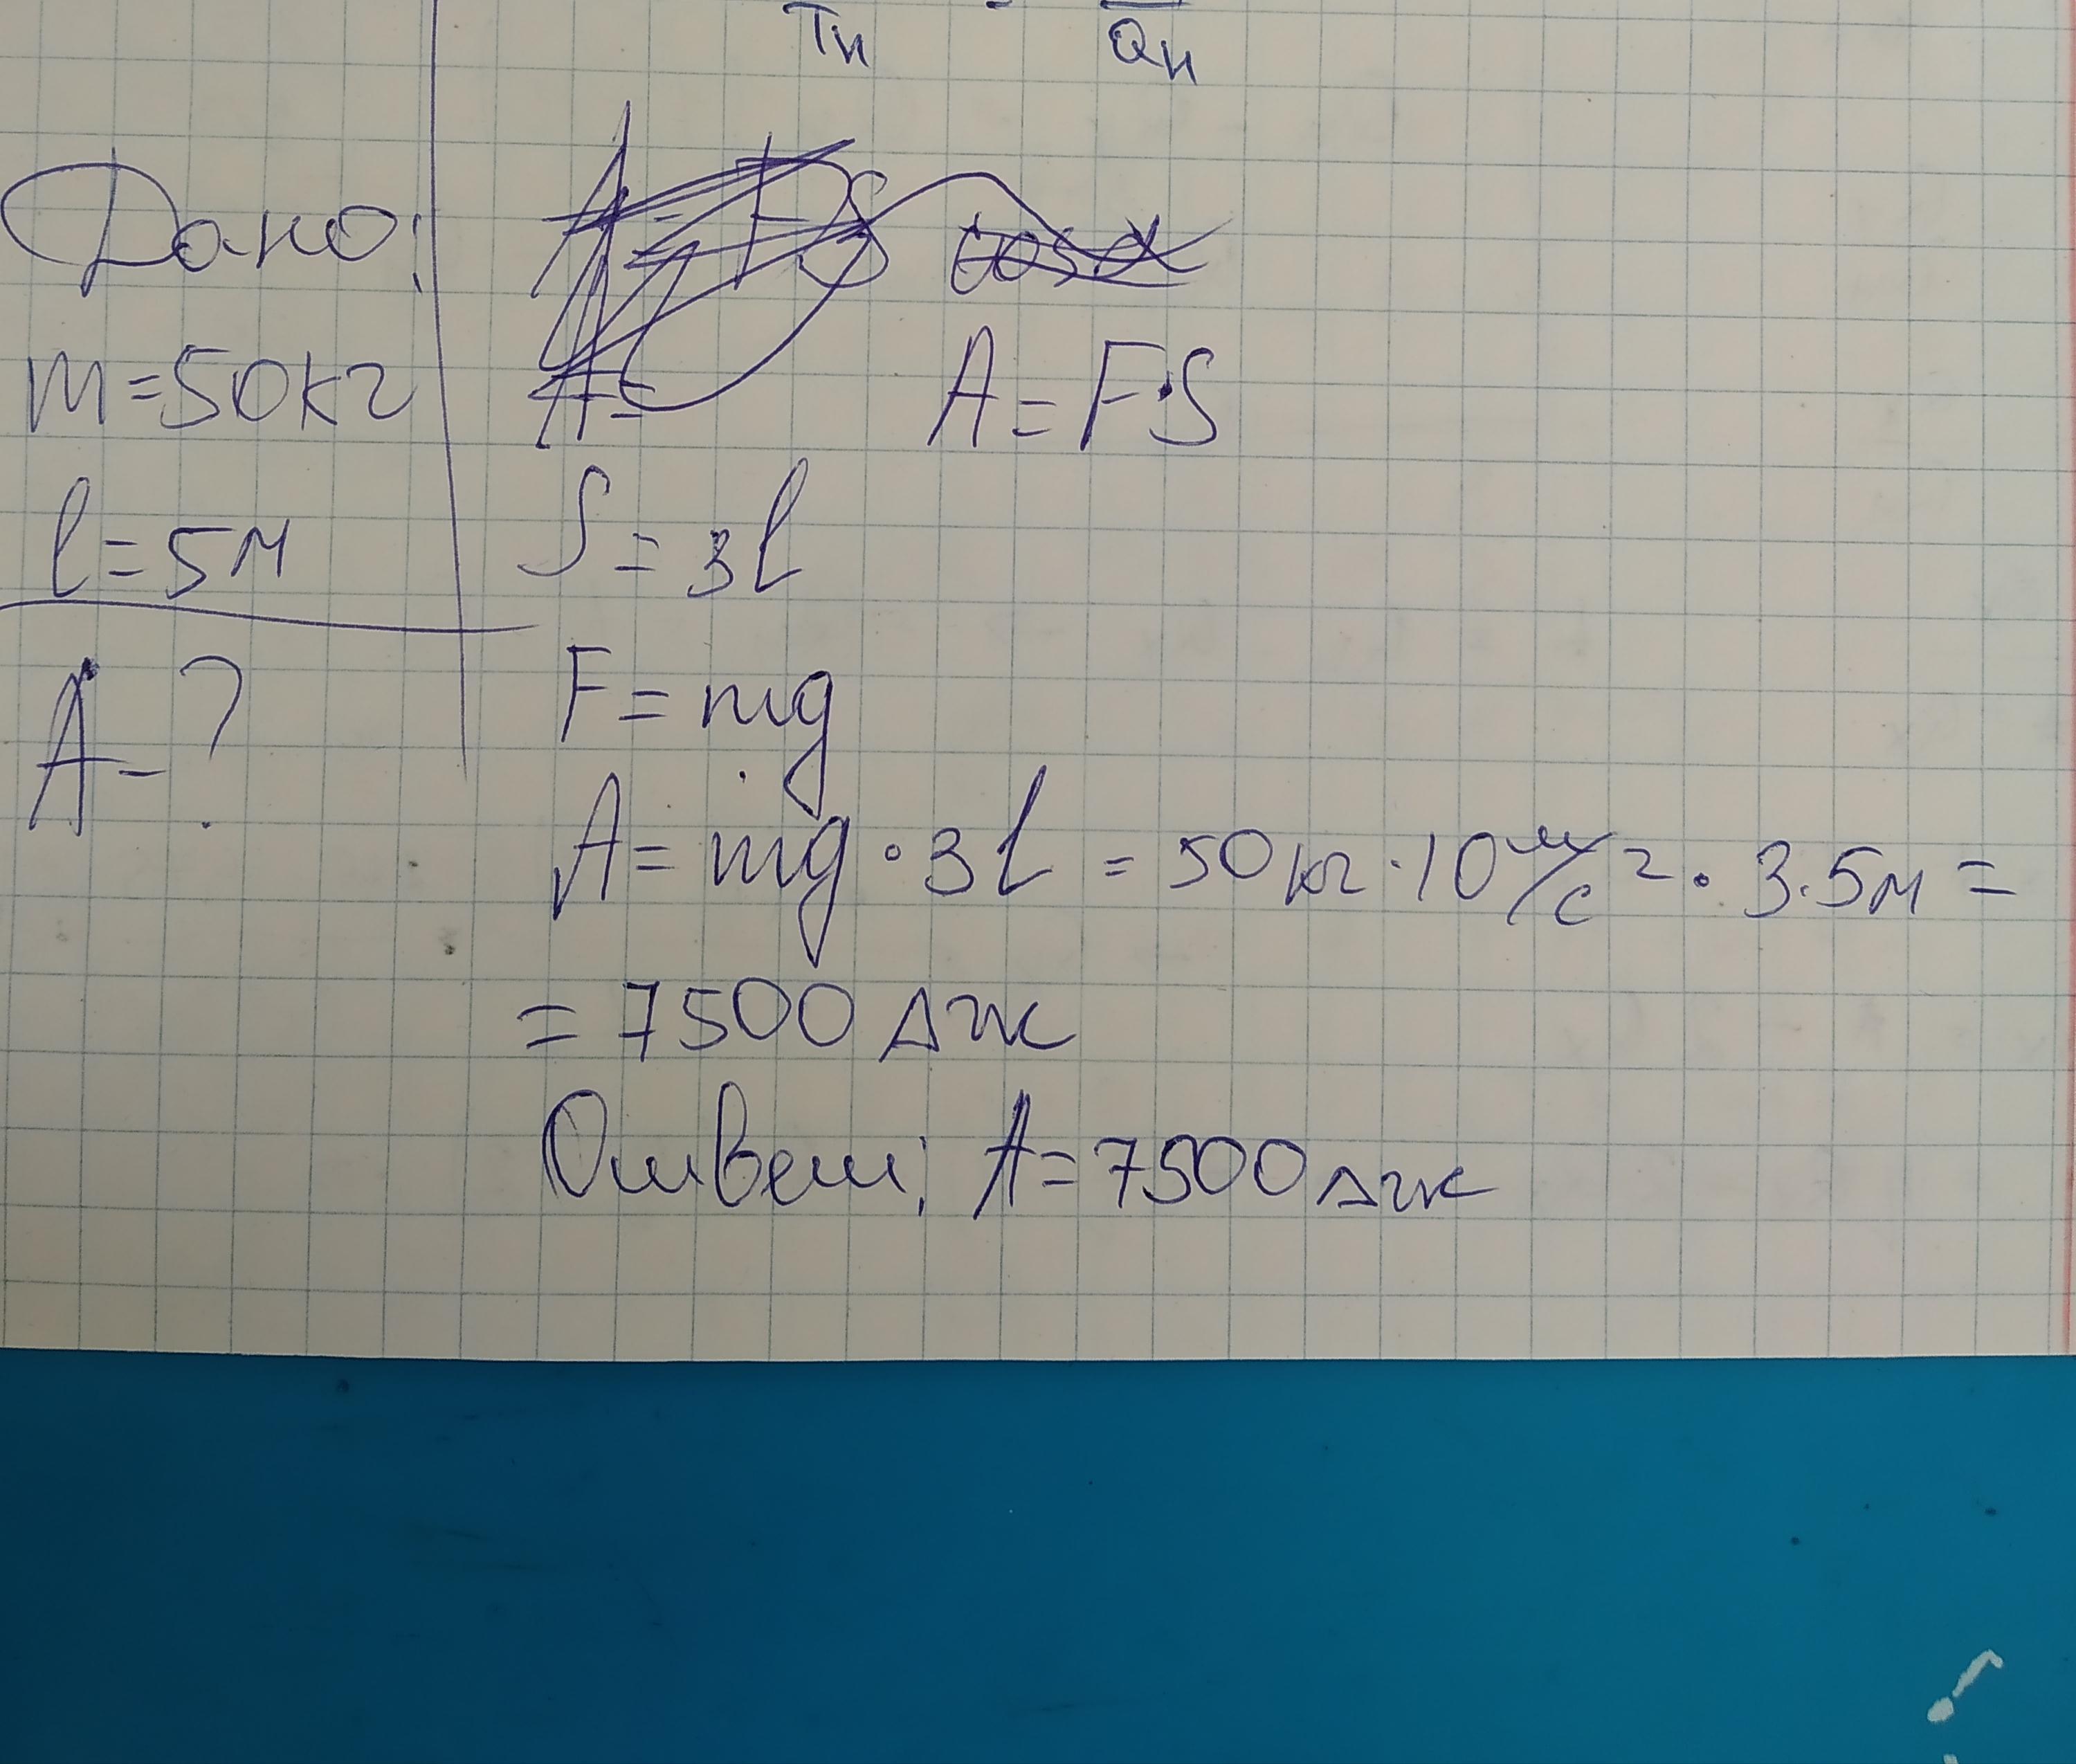 Tн Qн
Дано:
m=50кг
l=5м
A-?
cosα
A=F·S
S=3l
F=mg
A=mg·3l=50кг·10м/с²·3·5м=
=7500Дж
Ответ: A=7500Дж